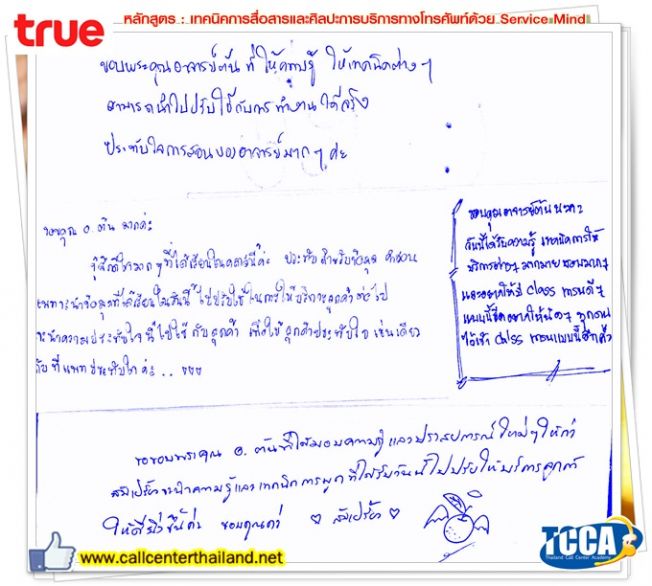 true
หลักสูตร : เทคนิคการสื่อสารและศิลปะการบริการทางโทรศัพท์ด้วย Service Mind
ขอบพระคุณอาจารย์ต้น ที่ ให้ความรู้ ให้เทคนิคต่าง ๆ
สามารถนำไปปรับใช้กับการทำงานได้จริง
ประทับใจการสอนของอาจารย์มาก ๆ ค่ะ
ขอบคุณ อ. ต้น มากค่ะ
รู้สึกดีใจมาก ๆ ที่ได้เรียนในคลาสนี้ค่ะ ประทับ สำหรับข้อมูล คำสอน
แพทจะนำข้อมูลที่ได้เรียนในวันนี้ ไปปรับใช้ในการให้บริการลูกค้าต่อไป
จะนำความประทับใจนี้ไปใช้ กับลูกค้า เพื่อให้ลูกค้าประทับใจ เช่นเดียว
กับที่แพทประทับใจค่ะ . .
ขอบคุณอาจารย์ต้นนะคะ
วันนี้ได้รับความรู้ เทคนิคการให้
บริการต่างๆ มากมาย ชอบมากๆ
และอยากให้มี Class เทรนดีๆ
แบบนี้อีก อยากให้น้องๆ ทุกคน
ได้เข้า Class เทรนแบบนี้อีกค่ะ
ขอขอบพระคุณ อ. ต้นที่ได้มอบความรู้ และประสบการณ์ใหม่ๆ ให้ค่ะ
ส้มเปรี้ยวจะนำความรู้และเทคนิคการพูด ที่ได้รับวันนี้ไปปรับให้บริการลูกค้า
ให้ดียิ่งขึ้นค่ะ ขอบคุณค่ะ ♡ ส้มเปรี้ยว ♡
www.callcenterthailand.net
TCCA
Thailand Call Center Academy